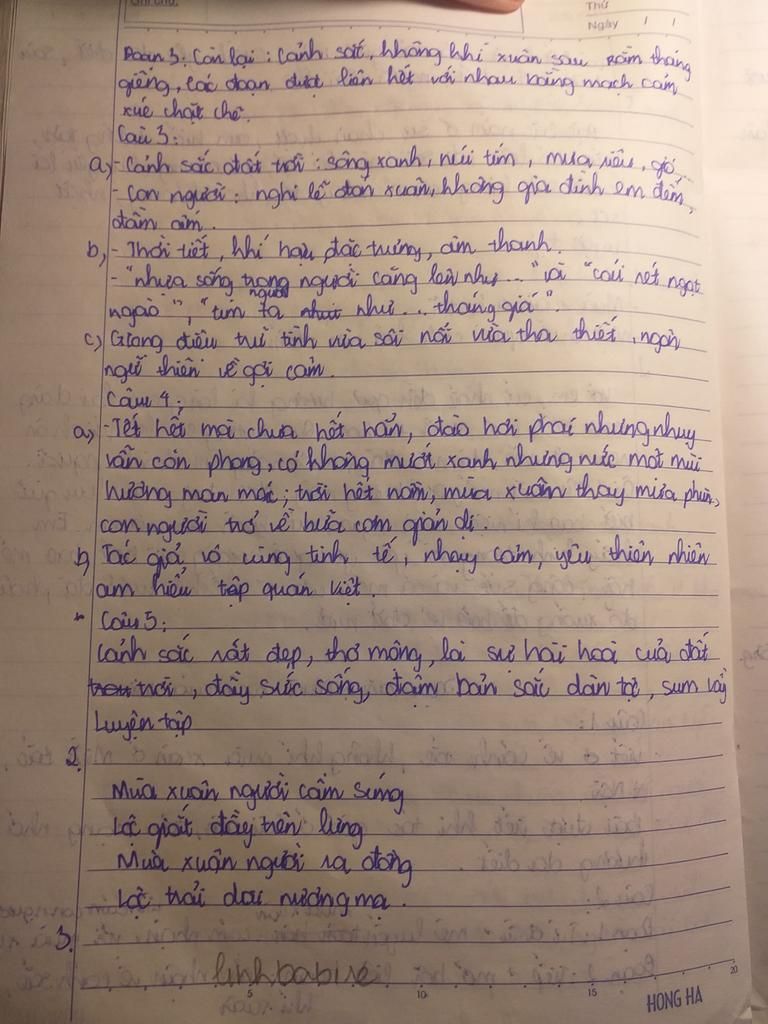 Ghi chú:
Thứ
Ngày / /
Đoạn 3: Còn lại: Cảnh sắc, không khí xuân sau rằm tháng
giêng, các đoạn được liên kết với nhau bằng mạch cảm
xúc chặt chẽ.
Câu 3:
a, - Cảnh sắc đất trời: sông xanh, núi tím, mưa riêu, gió,..
- Con người: nghi lễ đón xuân, không gia đình êm đềm,
đầm ấm.
b, - Thời tiết, khí hậu đặc trưng, âm thanh.
- "nhựa sống trong người căng lên như..." và "cái rét ngọt
ngào", "tim người ta như... tháng giá".
c, Giọng điệu trữ tình vừa sôi nổi vừa tha thiết, ngôn
ngữ thiên về gợi cảm.
Câu 4:
a, - Tết hết mà chưa hết hẳn, đào hơi phai nhưng nhụy
vẫn còn phong, cỏ không mướt xanh nhưng nức một mùi
hương man mác; trời hết nồm, mùa xuân thay mưa phùn,
con người trở về bữa cơm giản dị.
b, Tác giả vô cùng tinh tế, nhạy cảm, yêu thiên nhiên
am hiểu tập quán Việt.
Câu 5:
Cảnh sắc rất đẹp, thơ mộng, là sự hài hoà của đất
trời, đầy sức sống, đậm bản sắc dân tộc, sum vầy
Luyện tập
2.
Mùa xuân người cầm súng
Lộc giắt đầy trên lưng
Mùa xuân người ra đồng
Lộc trải dài nương mạ.
3.
linhbabive
5 10 15 20
HONG HA